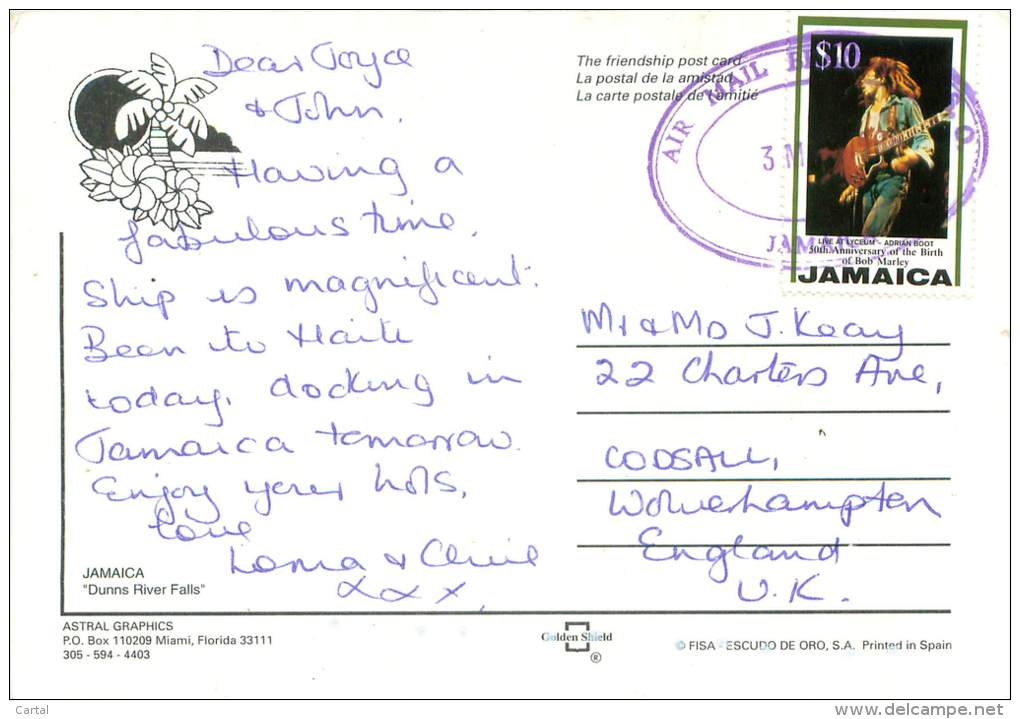 Dear Joyce
& John.
Having a
fabulous time.
Ship is magnificent.
Been to Haiti
today, docking in
Jamaica tomorrow.
Enjoy your hols,
Love
Lorna & Clive
xxx,
JAMAICA
"Dunns River Falls"
ASTRAL GRAPHICS
P.O. Box 110209 Miami, Florida 33111
305 - 594 - 4403
The friendship post card
La postal de la amistad
La carte postale de l'amitié
AIR MAIL
3 M
JAMAIC
$10
LIVE AT LYCEUM - ADRIAN BOOT
50th Anniversary of the Birth
of Bob Marley
JAMAICA
Mr & Mrs J. Keay
22 Charters Ave,
CODSALL,
Wolverhampton
England
U.K.
Golden Shield
®
© FISA - ESCUDO DE ORO, S.A. Printed in Spain
Cartal
www.delcampe.net